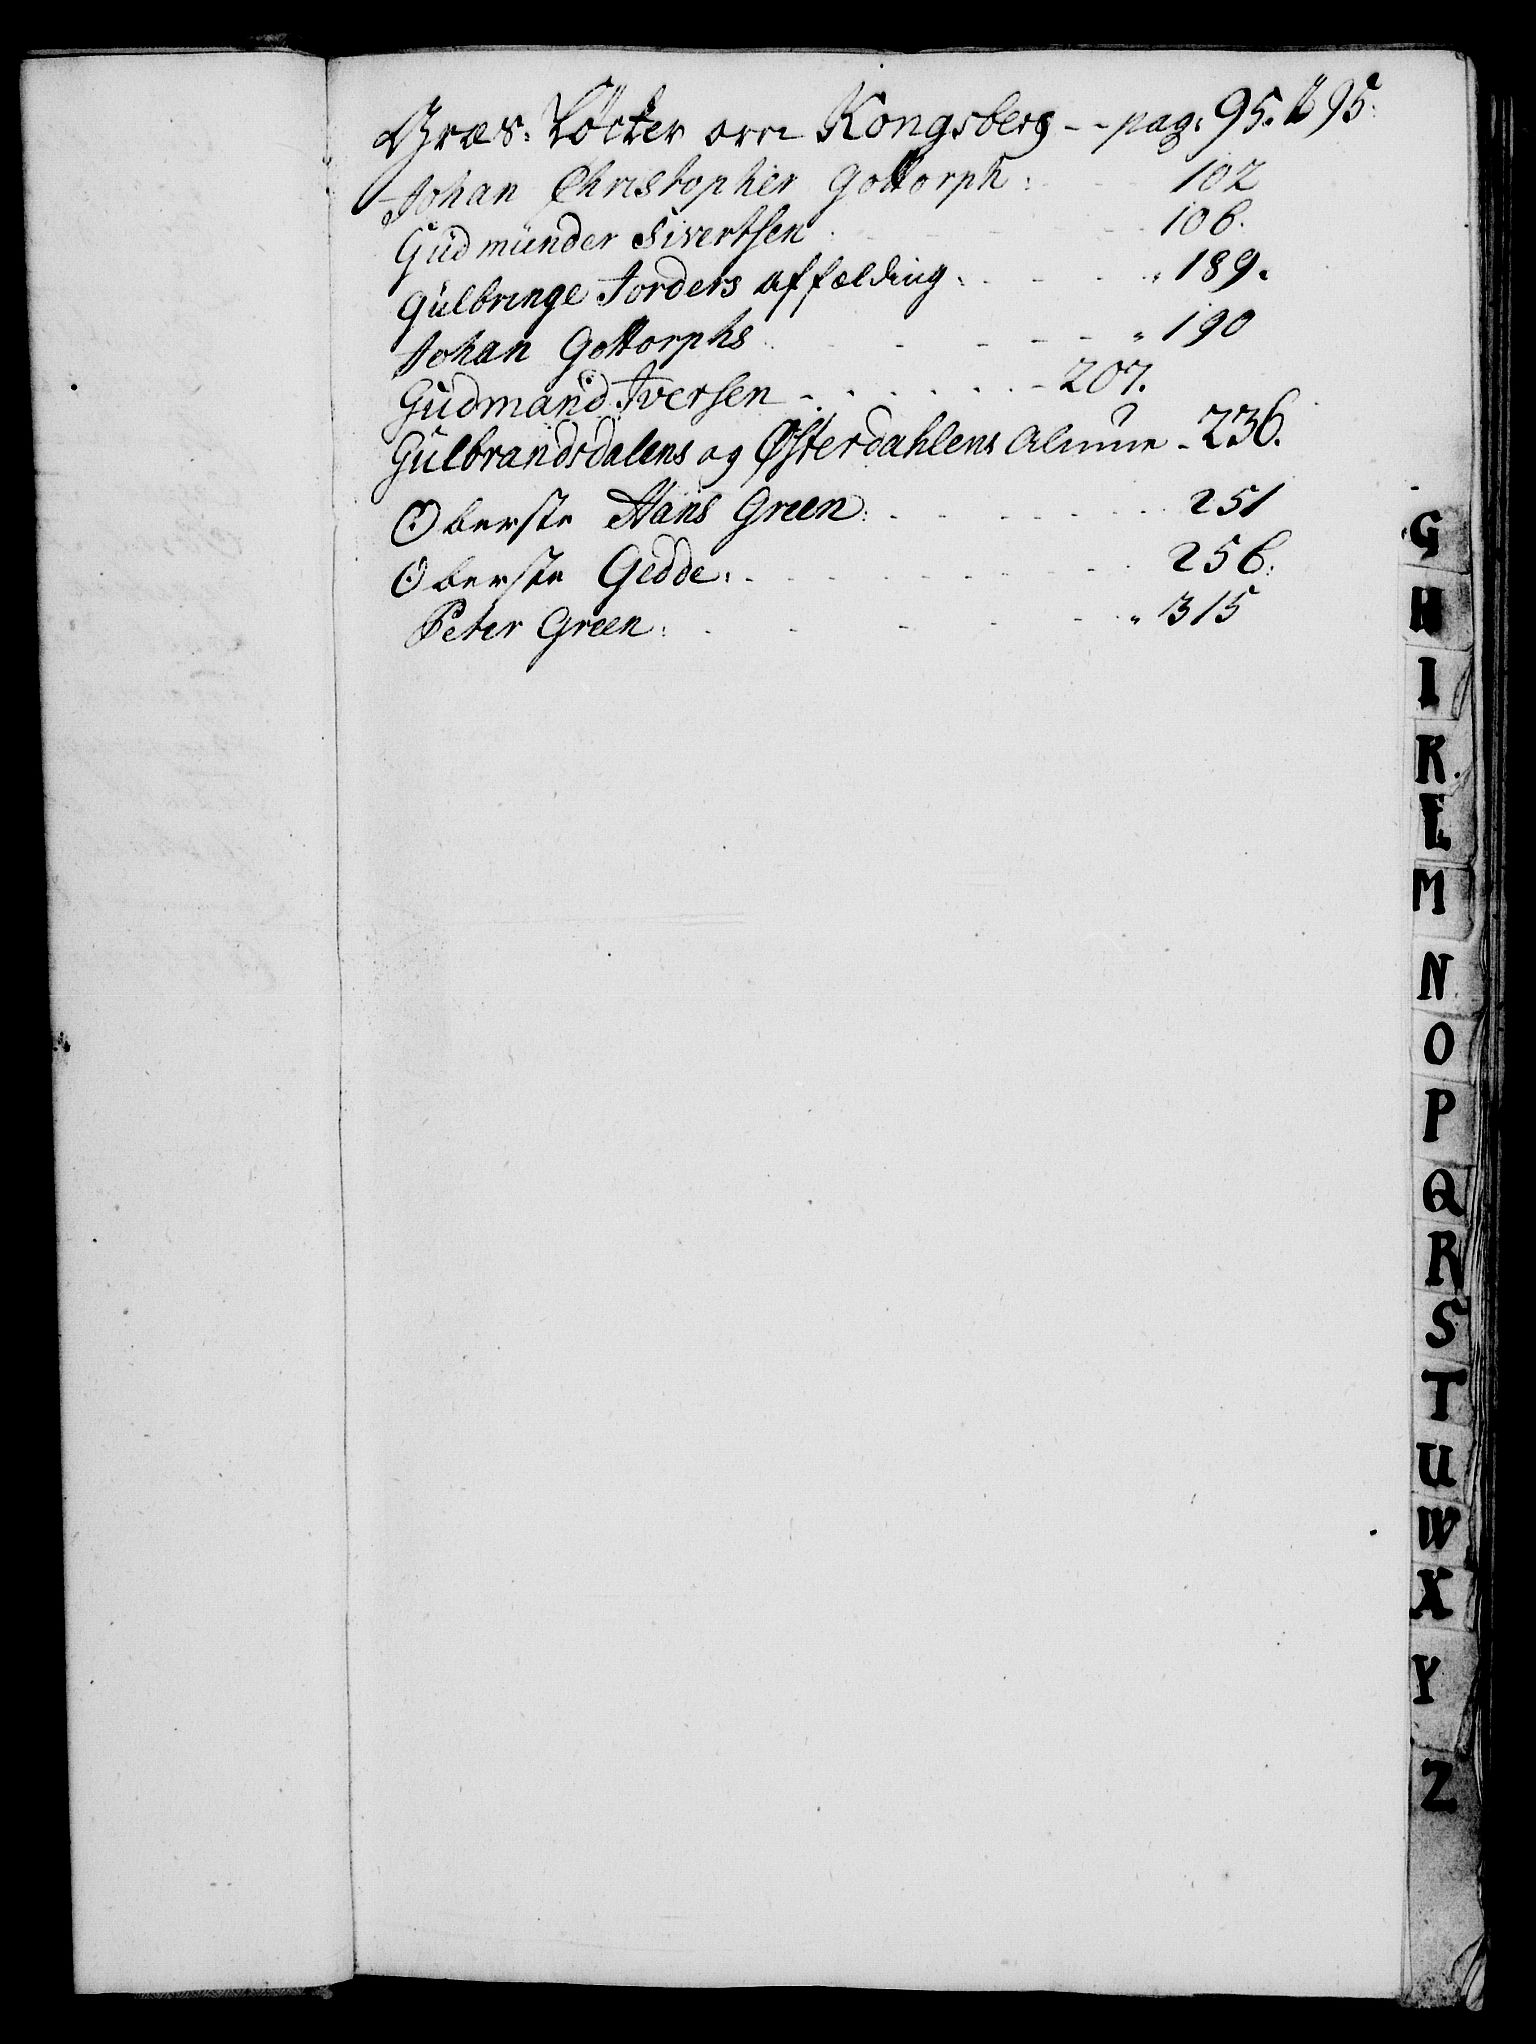 Græs-Løcker om Kongsberg - - pag: 95. & 95:
Johan Christopher Gottorph: 102
Gudmunder Sivertsen 106.
Gulbringe Jorders affælding: 189.
Johan Gottorphs 190
Gudmand Iversen - 207.
Gulbrandsdalens og Østerdahlens Almue - 236.
Oberste Hans Green: 251
Oberste Gedde: 256:
Peter Green: 315
G
H
I
K
L
M
N
O
P
Q
R
S
T
U
W
X
Y
Z